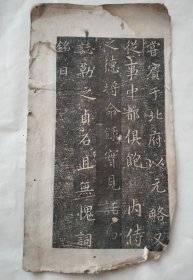 嘗賓于北府以元略又
從事中都俱飽 内侍
之德將命 實見託為
誌勒之貞石且無愧詞
銘曰